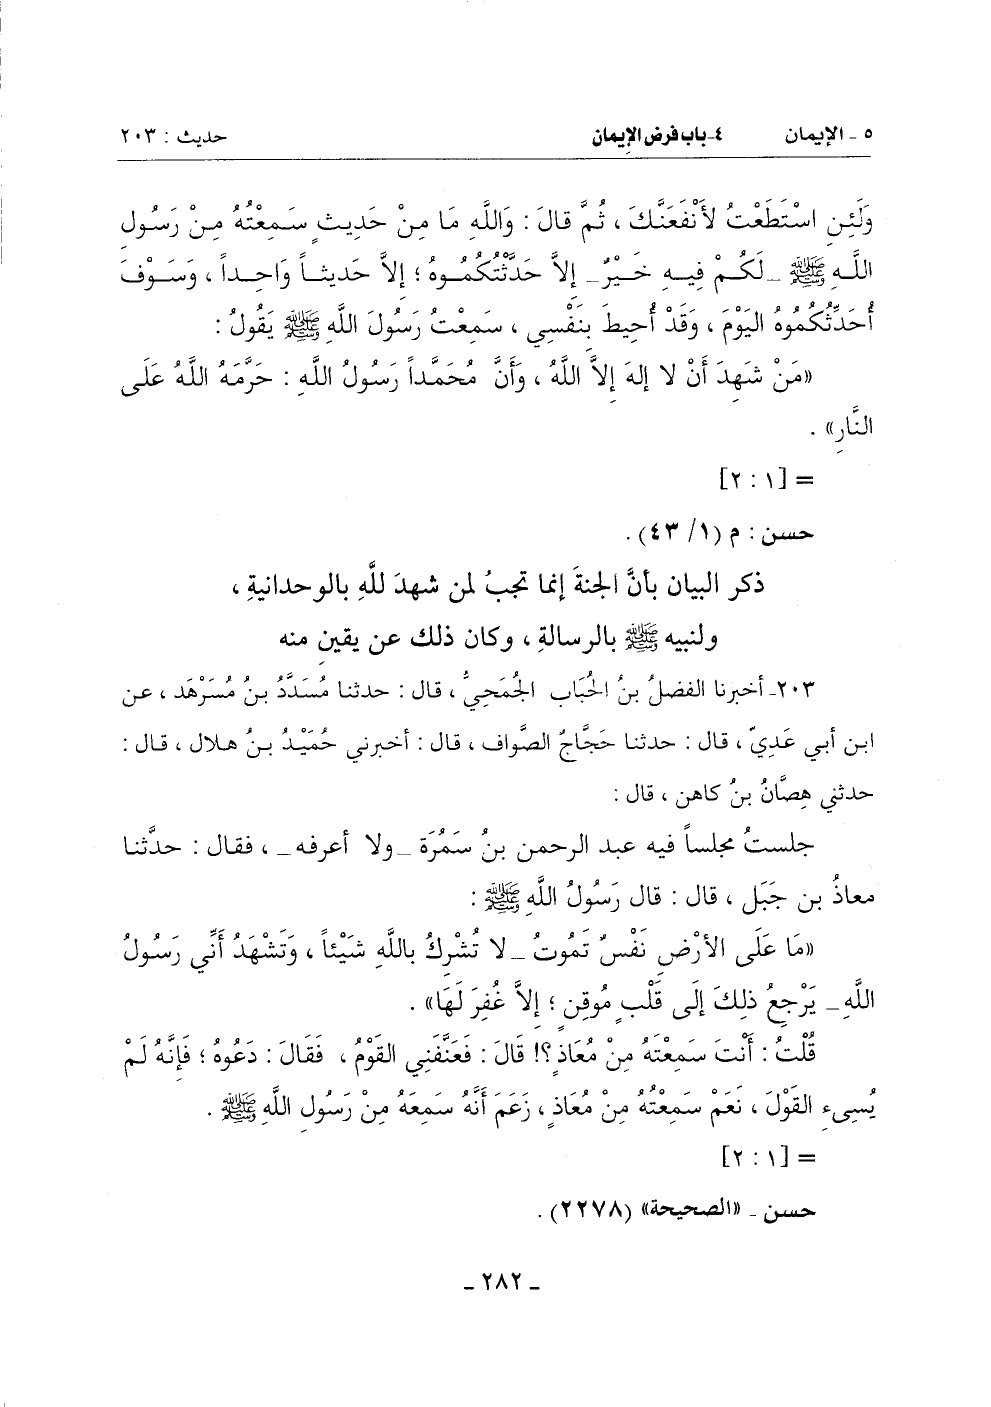 ٥ ـ الإيمان ٤ـ باب فرض الإيمان حديث : ٢٠٣
وَلَئِنِ اسْتَطَعْتُ لأَنْفَعَنَّكَ ، ثُمَّ قَالَ : وَاللَّهِ مَا مِنْ حَدِيثٍ سَمِعْتُهُ مِنْ رَسُولِ
اللَّهِ ﷺ ـ لَكُمْ فِيهِ خَيْرٌ ـ إِلاَّ حَدَّثْتُكُمُوهُ ؛ إِلاَّ حَدِيثاً وَاحِداً ، وَسَوْفَ
أُحَدِّثُكُمُوهُ اليَوْمَ ، وَقَدْ أُحِيطَ بِنَفْسِي ، سَمِعْتُ رَسُولَ اللَّهِ ﷺ يَقُولُ :
«مَنْ شَهِدَ أَنْ لا إِلهَ إِلاَّ اللَّهُ ، وَأَنَّ مُحَمَّداً رَسُولُ اللَّهِ : حَرَّمَهُ اللَّهُ عَلَى
النَّارِ» .
= [١ : ٢]
حسن : م (١/ ٤٣) .
ذكر البيان بأنَّ الجنةَ إنما تجبُ لمن شهدَ للَّهِ بالوحدانيةِ ،
ولنبيه ﷺ بالرسالةِ ، وكان ذلك عن يقينٍ منه
٢٠٣ـ أخبرنا الفضلُ بنُ الحُبَاب الجُمَحِيُّ ، قال : حدثنا مُسَدَّدُ بنُ مُسَرْهَد ، عن
ابن أبي عَدِيّ ، قال : حدثنا حَجَّاجُ الصَّواف ، قال : أخبرني حُمَيْدُ بنُ هلال ، قال :
حدثني هِصَّانُ بنُ كاهن ، قال :
جلستُ مجلساً فيه عبد الرحمن بنُ سَمُرَة ـ ولا أعرفه ـ ، فقال : حدَّثنا
معاذُ بن جَبَل ، قال : قال رَسُولُ اللَّهِ ﷺ :
«مَا عَلَى الأَرْضِ نَفْسٌ تَمُوتُ ـ لا تُشْرِكُ بِاللَّهِ شَيْئاً ، وَتَشْهَدُ أَنِّي رَسُولُ
اللَّهِ ـ يَرْجِعُ ذلِكَ إِلَى قَلْبٍ مُوقِنٍ ؛ إِلاَّ غُفِرَ لَهَا» .
قُلْتُ : أَنْتَ سَمِعْتَهُ مِنْ مُعَاذٍ ؟! قَالَ : فَعَنَّفَنِي القَوْمُ ، فَقَالَ : دَعُوهُ ؛ فَإِنَّهُ لَمْ
يُسِيءِ القَوْلَ ، نَعَمْ سَمِعْتُهُ مِنْ مُعَاذٍ ، زَعَمَ أَنَّهُ سَمِعَهُ مِنْ رَسُولِ اللَّهِ ﷺ .
= [١ : ٢]
حسن ـ «الصحيحة» (٢٢٧٨) .
ـ ٢٨٢ ـ